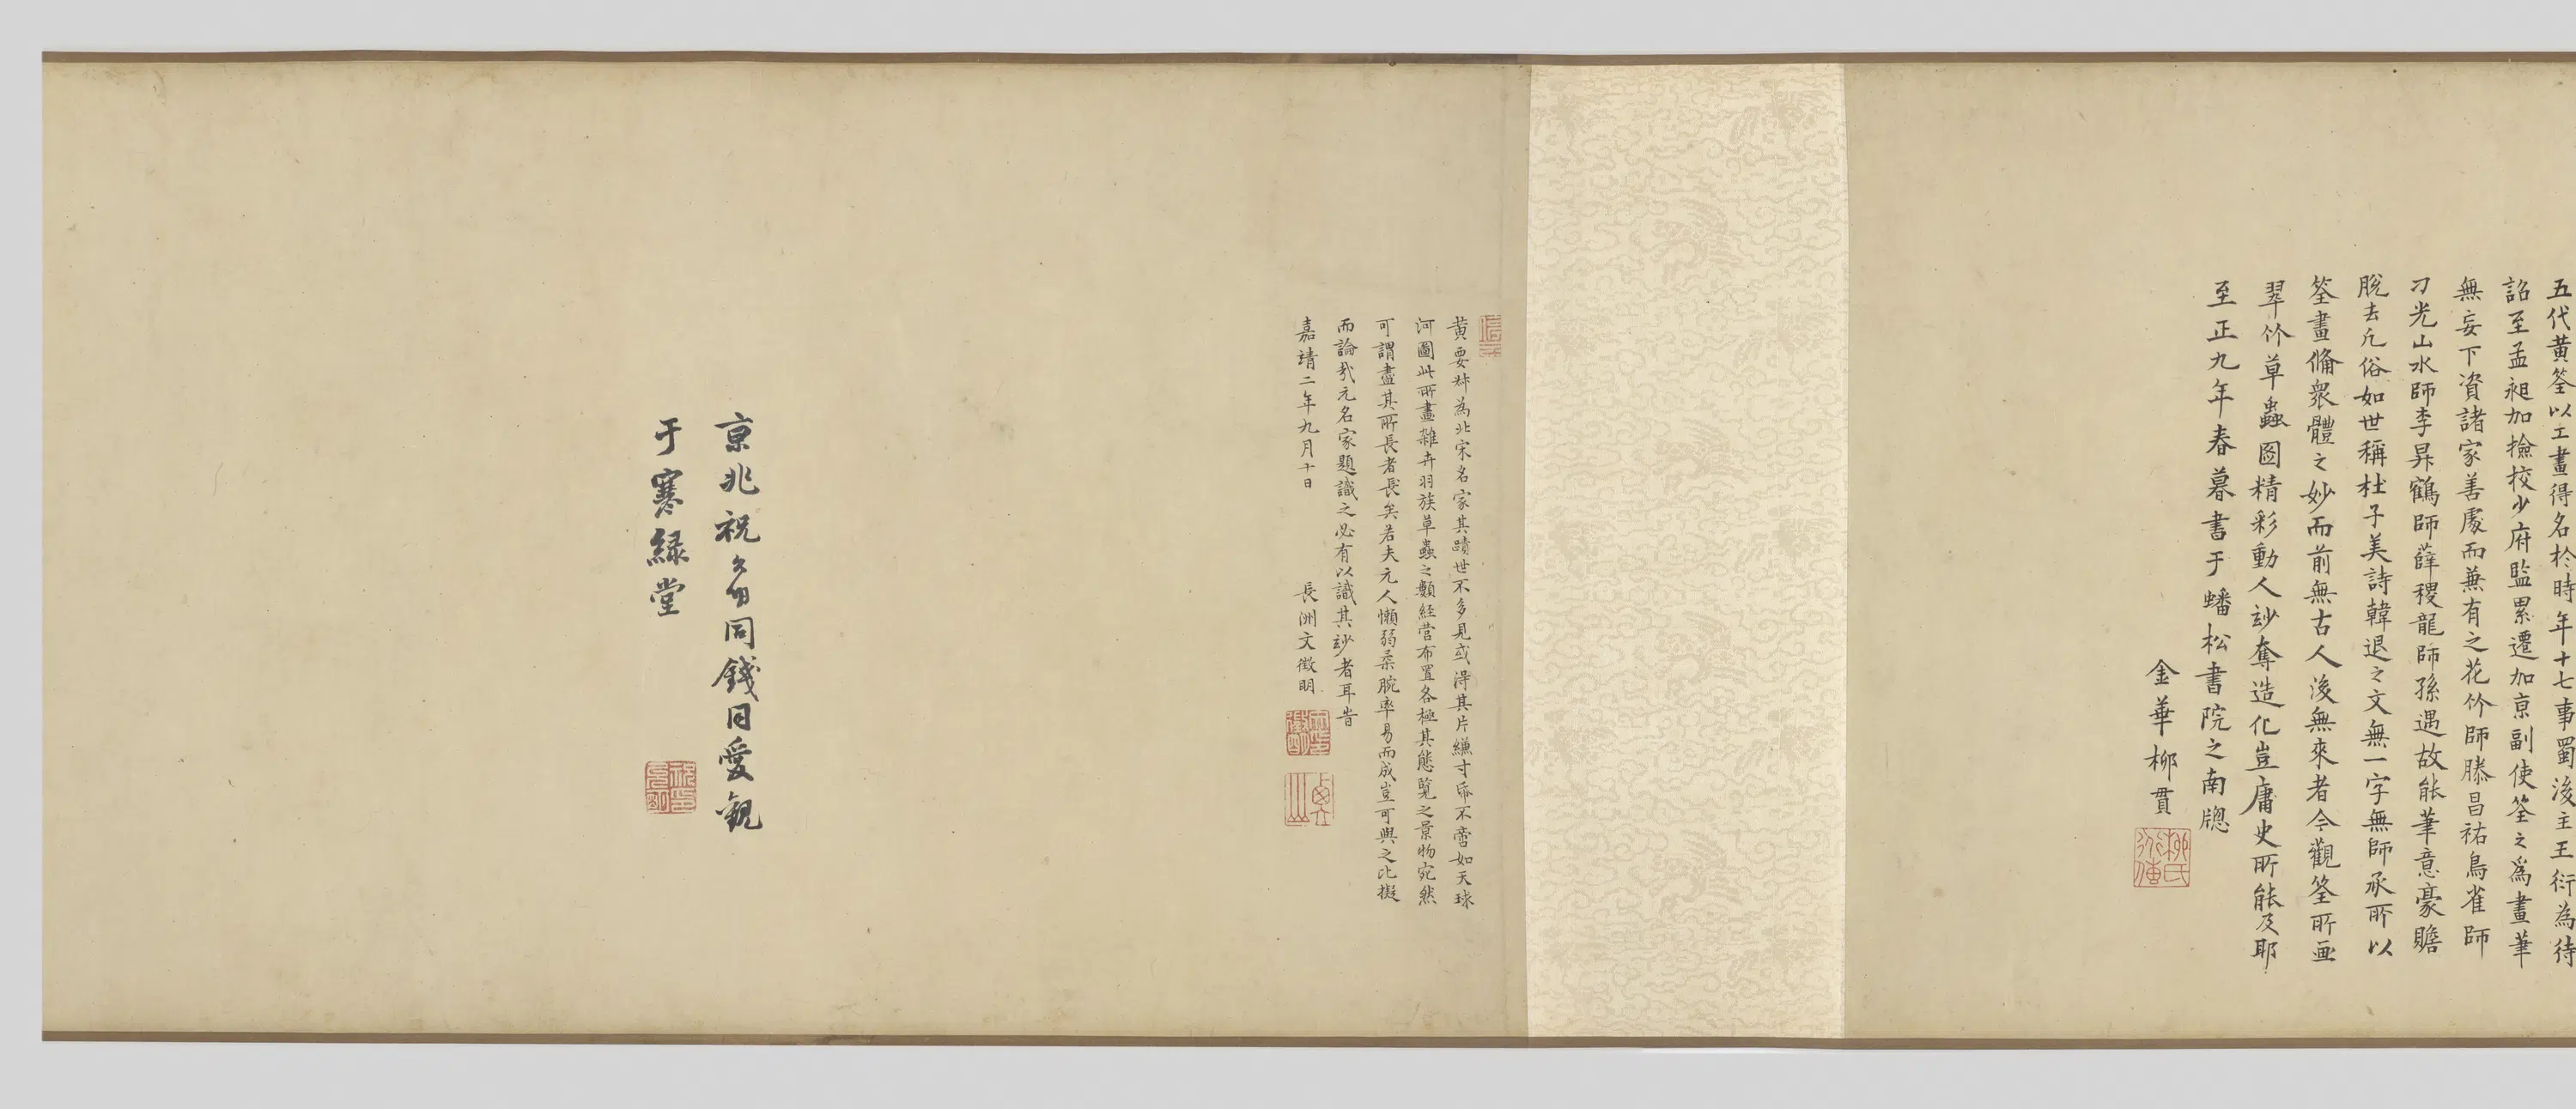 五代黄筌以工畫得名於時年十七事蜀後主王衍為待
詔至孟昶加檢校少府監累遷加京副使筌之爲畫筆
無妄下資諸家善處而兼有之花竹師滕昌祐鳥雀師
刁光山水師李昇鶴師薛稷龍師孫遇故能筆意豪贍
脫去凡俗如世稱杜子美詩韓退之文無一字無師承所以
筌畫備衆體之妙而前無古人後無來者今觀筌所画
翠竹草蟲圖精彩動人玅奪造化豈庸史所能及耶
至正九年春暮書于蟠松書院之南牕
金華柳貫
柳氏道傳
黄要叔為北宋名家其蹟世不多見或得其片縑寸帋不啻如天球
河圖此所畫雜卉羽族草蟲之類經營布置各極其態覽之景物宛然
可謂盡其所長者長矣若夫元人懶弱柔腕率易而成豈可與之比擬
而論哉元名家題識之必有以識其玅者耳昔
嘉靖二年九月十日
長洲文徵明
京兆祝允明同錢同愛觀
于寒綠堂